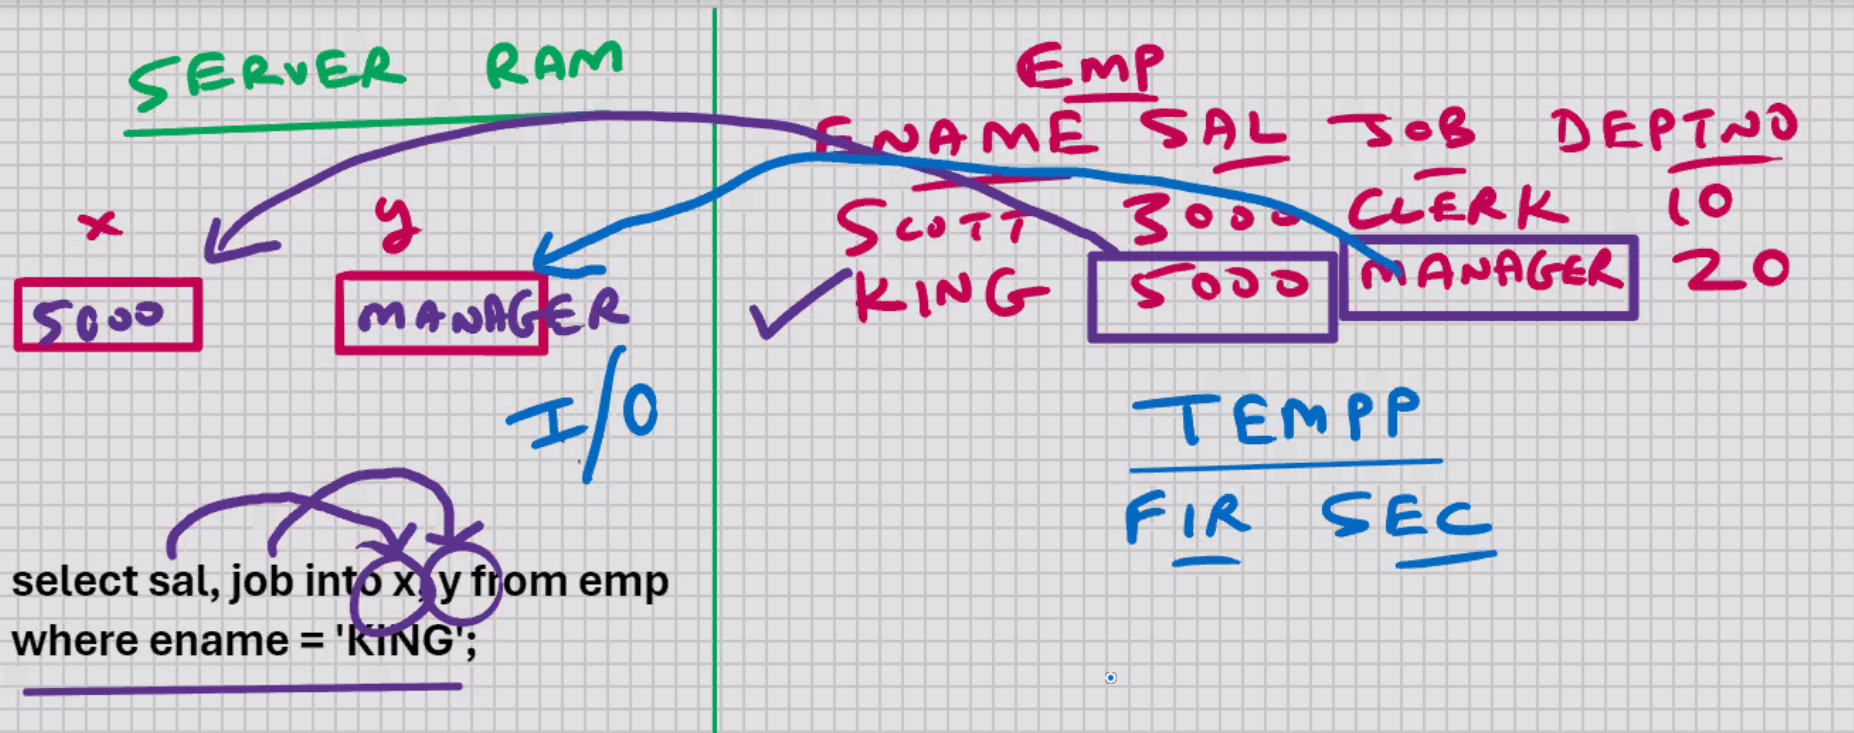 SERVER RAM
x y
5000 MANAGER
I/O
select sal, job into x, y from emp
where ename = 'KING';
EMP
ENAME SAL JOB DEPTNO
SCOTT 3000 CLERK 10
KING 5000 MANAGER 20
TEMPP
FIR SEC